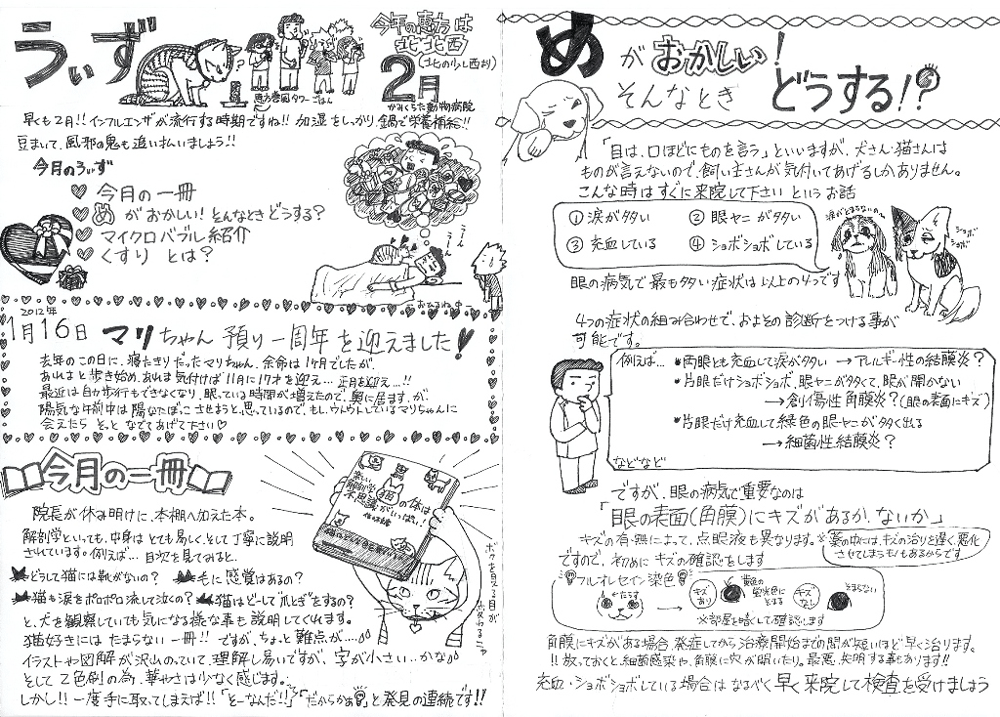 うぃず
今年の恵方は
北北西
(北の少し西より)
2月
恵方巻風タワーごはん
動物病院
早くも2月!!インフルエンザが流行する時期ですね!!加湿をしっかり、鍋で栄養補給!!
豆まいて、風邪の鬼も追い払いましょう!!
今月のうぃず
今月の一冊
めがおかしい!そんなときどうする?
マイクロバブル紹介
くすりとは?
うーん
うーん
おひるね中
2012年
1月16日 マリちゃん預り一周年を迎えました!
去年のこの日に、寝たきりだったマリちゃん、余命は1ヶ月でしたが、
あれよあれよと歩き始め、あれま気付けば11月に17才を迎え…正月を迎え…!!
最近は自力歩行もできなくなり、眠っている時間が増えたので、奥に居ますが、
陽気な午前中は陽なたぼっこさせようと、思っているので、もし、ウトウトしているマリちゃんに
会えたら そっと なでてあげて下さい♡
今月の一冊
院長が休み明けに、本棚へ加えた本。
解剖学といっても、中身はとても易しく、そして丁寧に説明
されています。例えば…目次を見てみると、
どうして猫には靴がないの? 毛に感覚はあるの?
猫も涙をポロポロ流して泣くの? 猫はどーして"爪とぎ"をするの?
と、犬を観察していても気になる様な事も説明してくれます。
猫好きにはたまらない一冊!!ですが、ちょっと難点が…
イラストや図解が沢山のっていて、理解し易いですが、字が小さい…かな
そして2色刷の為、華やさは少なく感じます。
しかし!!一度手に取ってしまえば!!「とーなんだ!!」「だからかぁ」と発見の連続です!!
楽しい解剖学
猫の体は
不思議がいっぱい!
ボクを見る目が
変わるよ!!
めがおかしい!
そんなとき どうする!?
「目は、口ほどにものを言う」といいますが、犬さん・猫さんは
ものが言えないので、飼い主さんが気付いてあげるしかありません。
こんな時はすぐに来院して下さい というお話
① 涙が多い ② 眼ヤニが多い
③ 充血している ④ ショボショボしている
涙がとまらないの〜
ショボ
ショボ
眼の病気で最も多い症状は以上の4つです
4つの症状の組み合わせで、おおよその診断をつける事が
可能です。
例えば… •両眼とも充血して涙が多い →アレルギー性の結膜炎?
•片眼だけショボショボ、眼ヤニが多くて、眼が開かない
→創傷性角膜炎?(眼の表面にキズ)
•片眼だけ充血して緑色の眼ヤニが多く出る
→細菌性結膜炎?
などなど
ですが、眼の病気で重要なのは
「眼の表面(角膜)にキズがあるか、ないか」
キズの有無によって、点眼液も異なります。※薬の中には、キズの治りを遅く、悪化
させてしまうモノもあるからです
ですので、初めに キズの確認をします
フルオレセイン染色
←たらす
キズあり
黄色の
蛍光色に
そまる
キズなし
そまらない
※部屋を暗くして確認します
角膜にキズがある場合、発症してから治療開始までの間が短いほど早く治ります。
!!放っておくと、細菌感染や、角膜に穴が開いたり。最悪、失明する事もあります!!
充血・ショボショボしている場合は なるべく早く来院して検査を受けましょう